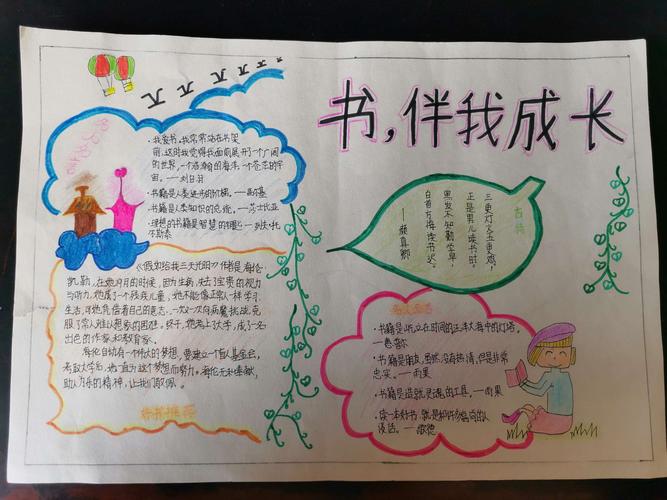 书,伴我成长
·我爱书,我常常站在书架
前,这时我觉得我面前展开了一个广阔
的世界,一个浩瀚的海洋,一个苍茫的宇
宙。——刘白羽
·书籍是人类进步的阶梯。——高尔基
·书籍是人类知识的总统。——莎士比亚
·理想的书籍是智慧的钥匙。——列夫·托
尔斯泰
古诗
三更灯火五更鸡,
正是男儿读书时,
黑发不知勤学早,
白首方悔读书迟。
——颜真卿
《假如给我三天光明》作者是海伦
凯勒,在她
月的时候,因为生病,失去了宝贵的视力
与听力,她成了一个残疾儿童,她不能像正常人一样学习、
生活,可她凭借着自己的意志,一次又一次向病魔挑战,克
服了常人难以想象的困难。终于,她考上了大学,成了一名
出色的作家和教育家。
海伦自幼有一个伟大的梦想,要建立一个盲人基金会,
考取大学后,她一直为这个梦想而努力。海伦无私奉献,
助人为乐的精神,让我们敬佩。
好书推荐
名人名言
·书籍是屹立在时间的汪洋大海中的灯塔。
·书籍是朋友,虽然没有热情,但是非常
忠实。——雨果
·书籍是造就灵魂的工具。——雨果
·读一本好书,就是和许多高尚的人
谈话。——歌德